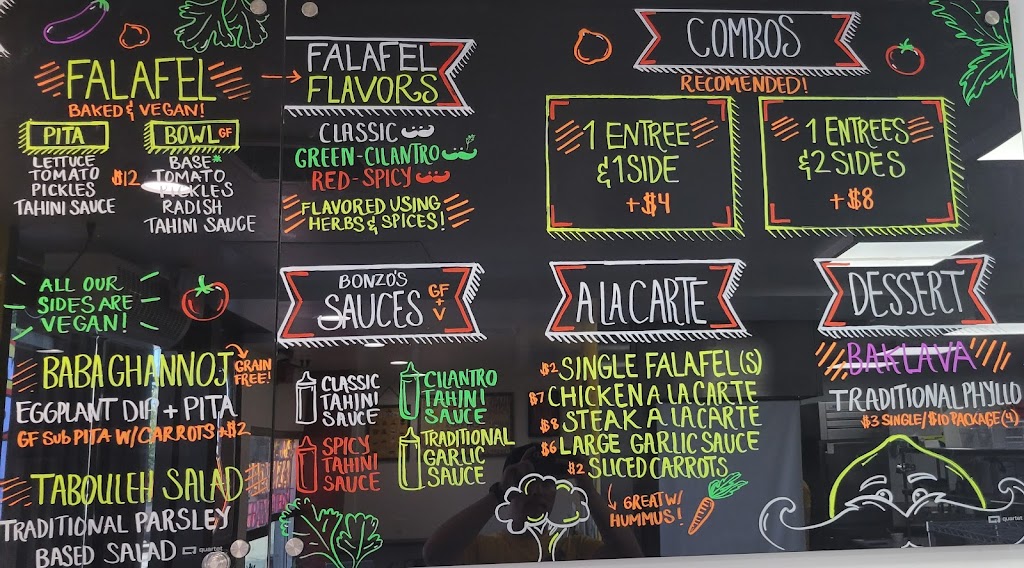 FALAFEL
BAKED & VEGAN!
PITA
LETTUCE
TOMATO
PICKLES
TAHINI SAUCE
$12
BOWL GF
BASE*
TOMATO
PICKLES
RADISH
TAHINI SAUCE
FALAFEL
FLAVORS
CLASSIC
GREEN-CILANTRO
RED-SPICY
FLAVORED USING
HERBS & SPICES!
COMBOS
RECOMENDED!
1 ENTREE
& 1 SIDE
+$4
1 ENTREES
& 2 SIDES
+$8
ALL OUR
SIDES ARE
VEGAN!
BABA GHANNOJ
GRAIN
FREE!
EGGPLANT DIP + PITA
GF SUB PITA W/CARROTS +$2
TABOULEH SALAD
TRADITIONAL PARSLEY
BASED SALAD
quartet
BONZO'S
SAUCES
GF
+
V
CLASSIC
TAHINI
SAUCE
CILANTRO
TAHINI
SAUCE
SPICY
TAHINI
SAUCE
TRADITIONAL
GARLIC
SAUCE
A LA CARTE
$2 SINGLE FALAFEL(S)
$7 CHICKEN A LA CARTE
$8 STEAK A LA CARTE
$6 LARGE GARLIC SAUCE
$2 SLICED CARROTS
GREAT W/
HUMMUS!
DESSERT
BAKLAVA
TRADITIONAL PHYLLO
$3 SINGLE/$10 PACKAGE(4)
quartet